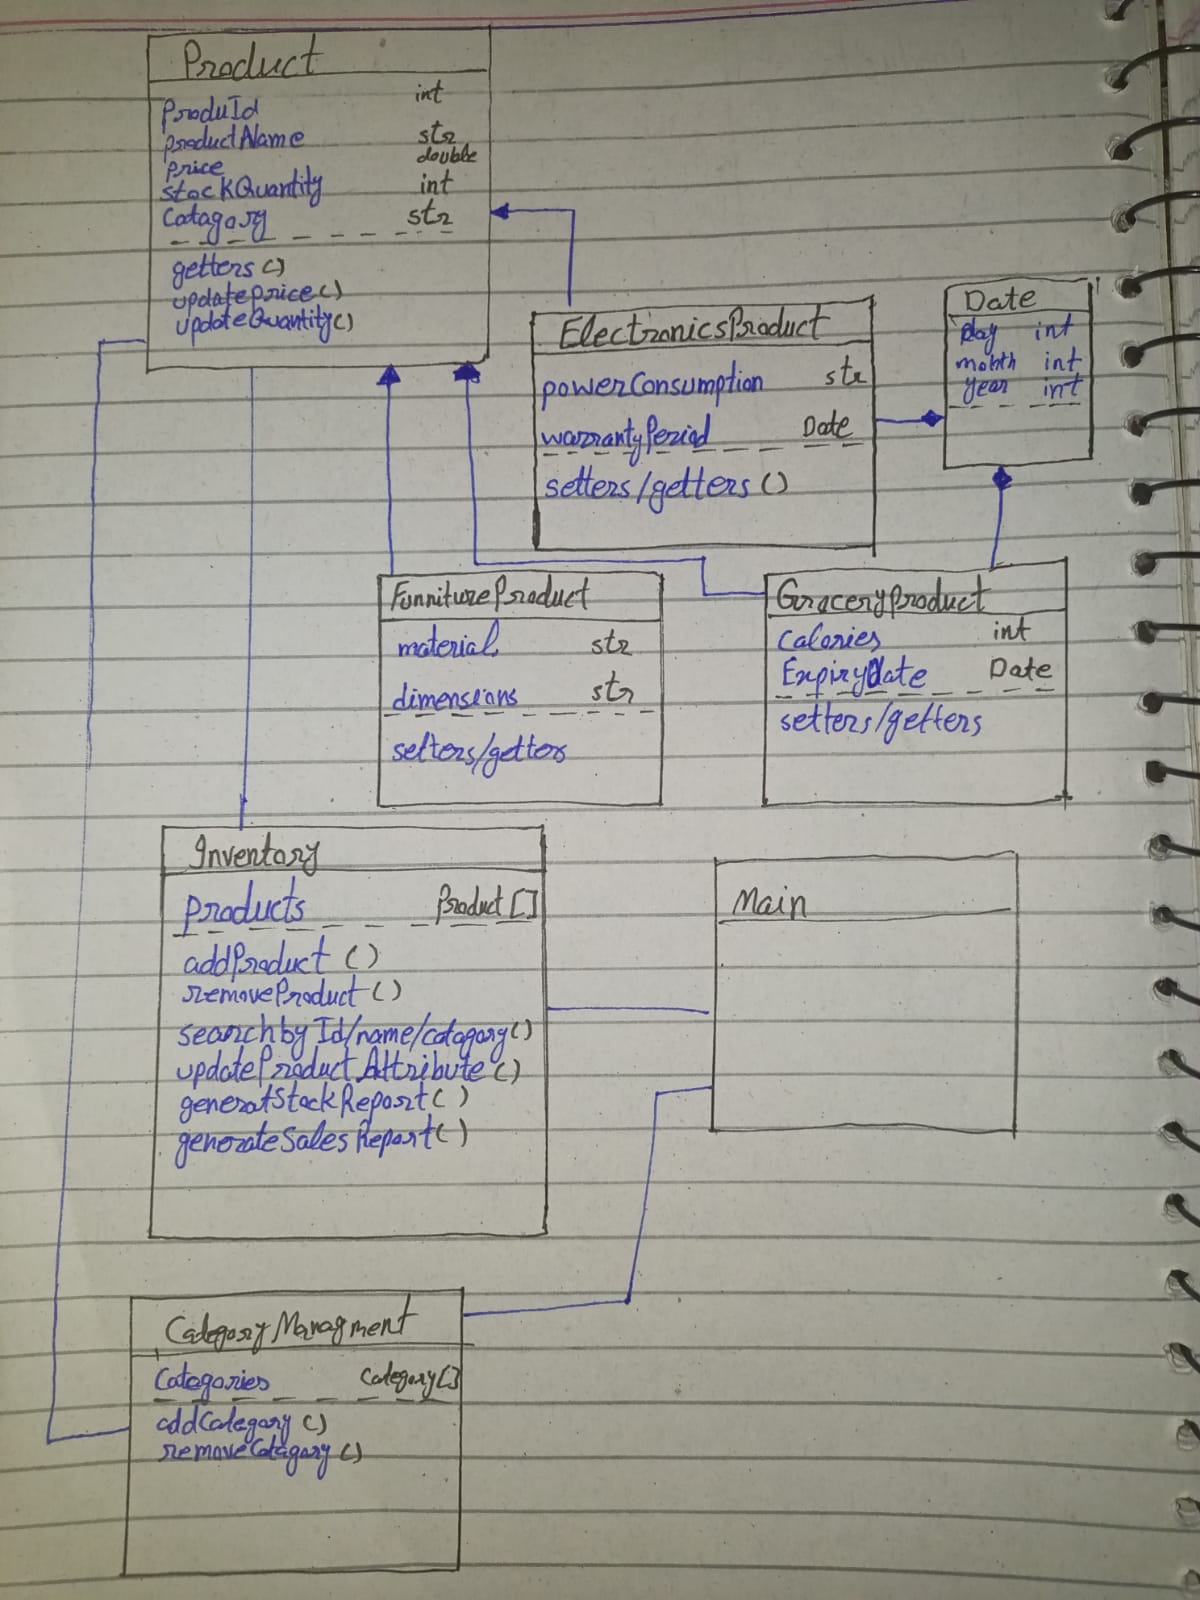 Product
ProduId int
productName str
price double
stockQuantity int
Catagary str
getters()
updateprice()
updateQuantity()
ElectronicsProduct
powerConsumption str
warrantyPeriod Date
setters/getters ()
Date
day int
month int
year int
FunnitureProduct
material str
dimensions str
setters/getters
GroceryProduct
Calories int
ExpiryDate Date
setters/getters
Inventory
Products Product[]
addProduct ()
removeProduct()
searchby Id/name/catagory()
updateProductAttribute()
generatStockReport()
generateSalesReport()
Main
CategoryManagment
Catagories Category[]
addCategary()
removeCatagary()